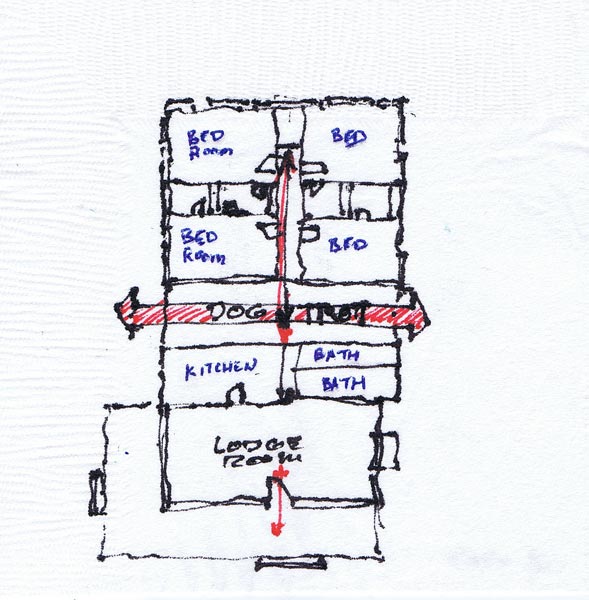 BED
ROOM
BED
BED
ROOM
BED
DOG TROT
KITCHEN
BATH
BATH
LODGE
ROOM